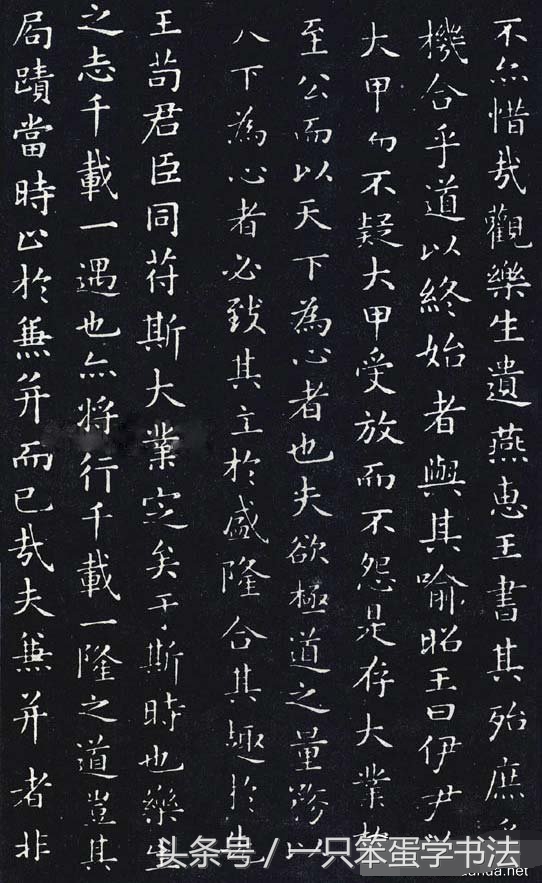 不亦惜哉觀樂生遺燕惠王書其殆庶乎
機合乎道以終始者與其喻昭王曰伊尹
大甲而不疑大甲受放而不怨是存大業於
至公而以天下為心者也夫欲極道之量務以
天下為心者必致其主於盛隆合其趣於先
王苟君臣同符斯大業定矣于斯時也樂生
之志千載一遇也亦將行千載一隆之道豈其
局蹟當時止於兼并而已哉夫兼并者非
头条号／一只笨蛋学书法